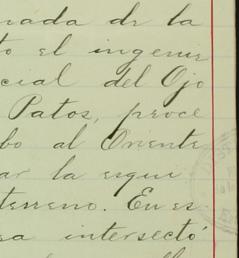 nada de la
to el ingenie
cial del Ojo
Patos, proce
bo al Oriente
ar la esqui
terreno. En es
sa intersectó